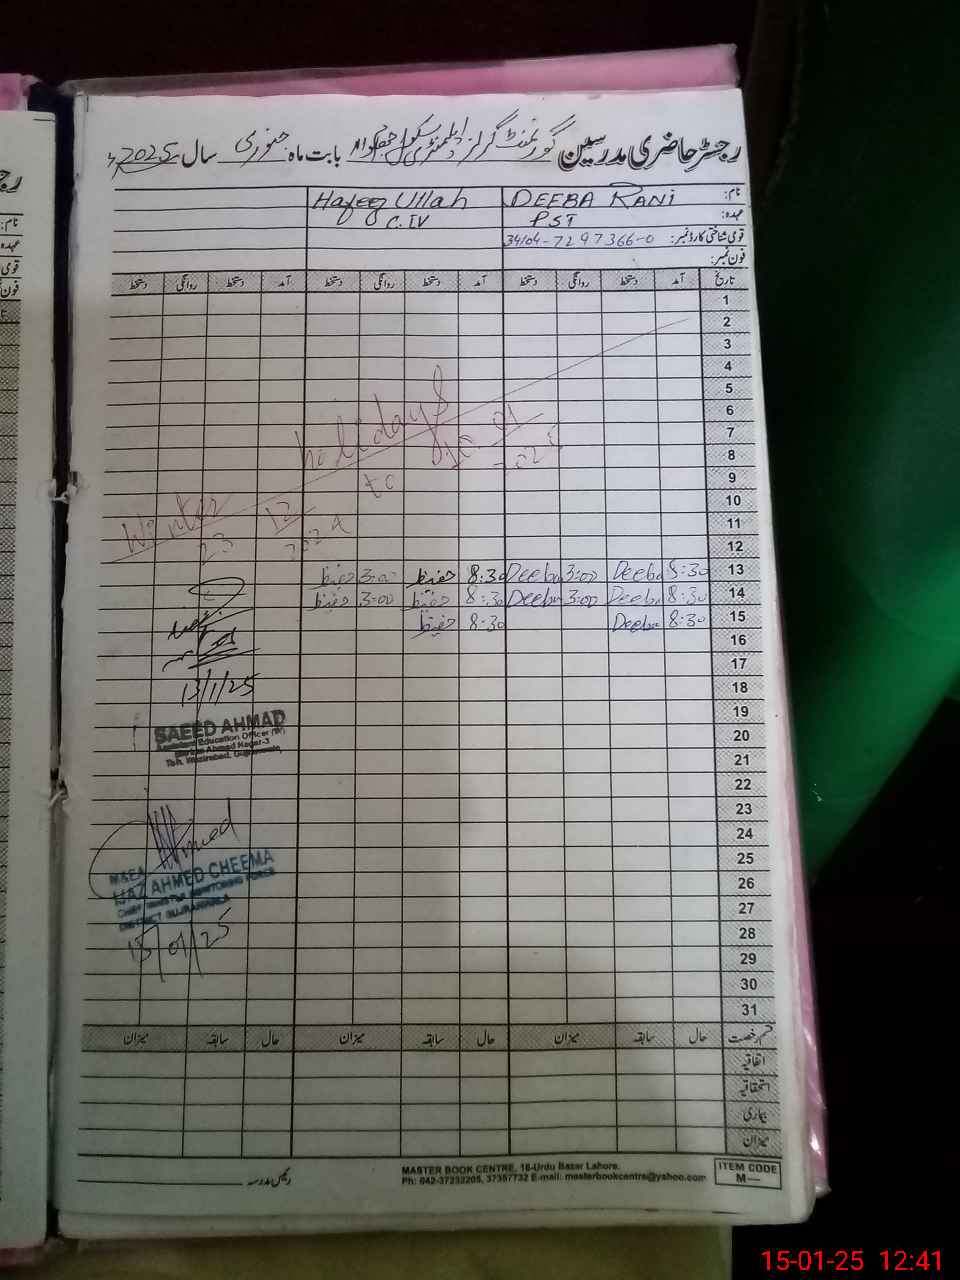 رجسٹر حاضری مدرسین گورنمنٹ گرلز ایلیمنٹری سکول بابت ماہ جنوری سال 2025ء
نام: DEEBA RANI Hafeez Ullah
عہدہ: PST C.IV
قومی شناختی کارڈ نمبر: 34104-7297366-0
فون نمبر:
تاریخ آمد دستخط روانگی دستخط آمد دستخط روانگی دستخط آمد دستخط روانگی دستخط
1
2
3
4
5
6
7
8
9
10
11
12
Winter holidays
23 12 2024 to 01 2025
13 8:30 Deeba 3:00 Deeba 8:30 حفیظ 3:00 حفیظ
14 8:30 Deeba 3:00 Deeba 8:30 حفیظ 3:00 حفیظ
15 8:30 Deeba 8:30 حفیظ
16
17
18
19
20
21
22
23
24
25
26
27
28
29
30
31
13/1/25
SAEED AHMAD
Assistant Education Officer (W)
Markaz Ahmad Nagar-3
Teh. Wazirabad, Gujranwala
Ahmed
M&EA
IJAZ AHMED CHEEMA
CHIEF MINISTER MONITORING FORCE
DISTRICT GUJRANWALA
15/01/25
قسم رخصت حال سابقہ میزان حال سابقہ میزان حال سابقہ میزان
اتفاقیہ
استحقاقیہ
بیماری
میزان
رئیس مدرسہ
MASTER BOOK CENTRE, 18-Urdu Bazar Lahore.
Ph: 042-37232205, 37357732 E-mail: masterbookcentre@yahoo.com
ITEM CODE
M—
15-01-25 12:41